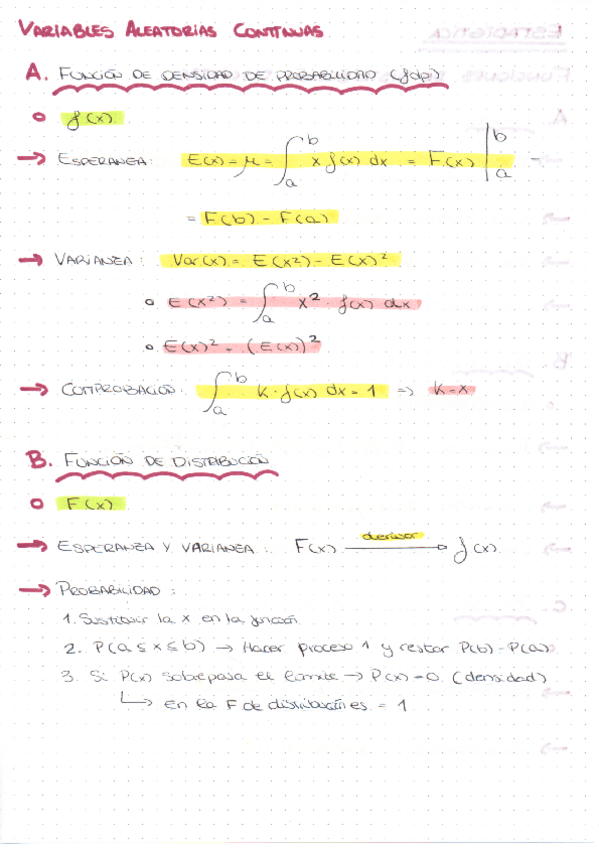 VARIABLES ALEATORIAS CONTINUAS
A. FUNCIÓN DE DENSIDAD DE PROBABILIDAD (fdp)
f(x)
→ ESPERANZA: E(x) = μ = ∫ₐᵇ x f(x) dx = F(x) |ₐᵇ =
= F(b) - F(a)
→ VARIANZA: Var(x) = E(x²) - E(x)²
E(x²) = ∫ₐᵇ x² · f(x) dx
E(x)² = (E(x))²
→ COMPROBACIÓN: ∫ₐᵇ K · f(x) dx = 1 => K = x
B. FUNCIÓN DE DISTRIBUCIÓN
F(x)
→ ESPERANZA Y VARIANZA: F(x) derivar → f(x)
→ PROBABILIDAD:
1. Sustituir la x en la función
2. P(a ≤ x ≤ b) → Hacer proceso 1 y restar P(b) - P(a)
3. Si P(x) sobrepasa el límite → P(x) = 0 (densidad)
↳ en la F de distribución es = 1